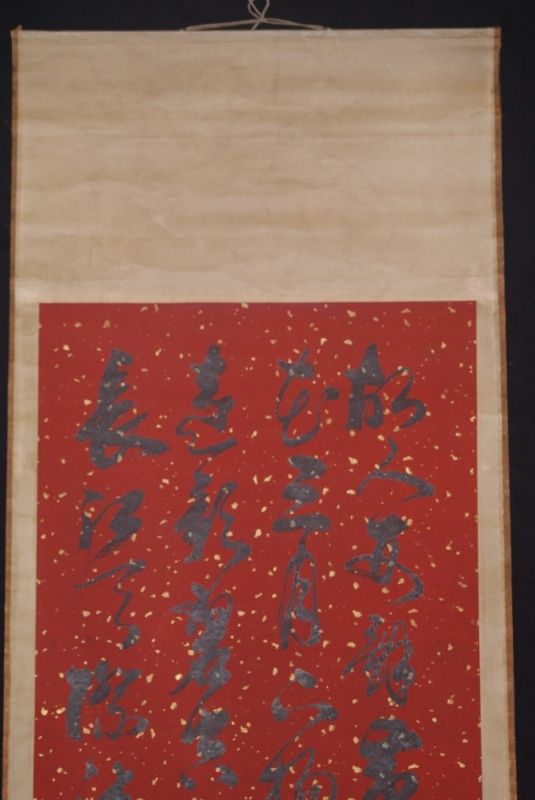 故人西辭黃
花三月下揚
遠影碧空
長江天際流